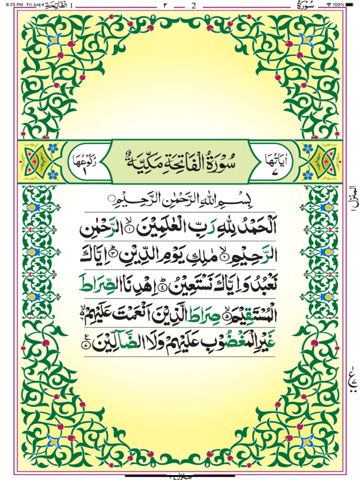 8:25 PM Fri Jun 4
100%
الفاتحة ١
٢
2
سُوْرَة
اٰيَاتُهَا ٧
سُوْرَةُ الْفَاتِحَةِ مَكِّيَّةٌ
رُكُوْعُهَا ١
بِسْمِ اللهِ الرَّحْمٰنِ الرَّحِيْمِ
اَلْحَمْدُ لِلّٰهِ رَبِّ الْعٰلَمِيْنَ ۝١ الرَّحْمٰنِ
الرَّحِيْمِ ۝٢ مٰلِكِ يَوْمِ الدِّيْنِ ۝٣ اِيَّاكَ
نَعْبُدُ وَاِيَّاكَ نَسْتَعِيْنُ ۝٤ اِهْدِنَا الصِّرَاطَ
الْمُسْتَقِيْمَ ۝٥ صِرَاطَ الَّذِيْنَ اَنْعَمْتَ عَلَيْهِمْ ۝٦
غَيْرِ الْمَغْضُوْبِ عَلَيْهِمْ وَلَا الضَّآلِّيْنَ ۝٧
المنزل ١
منزل ١